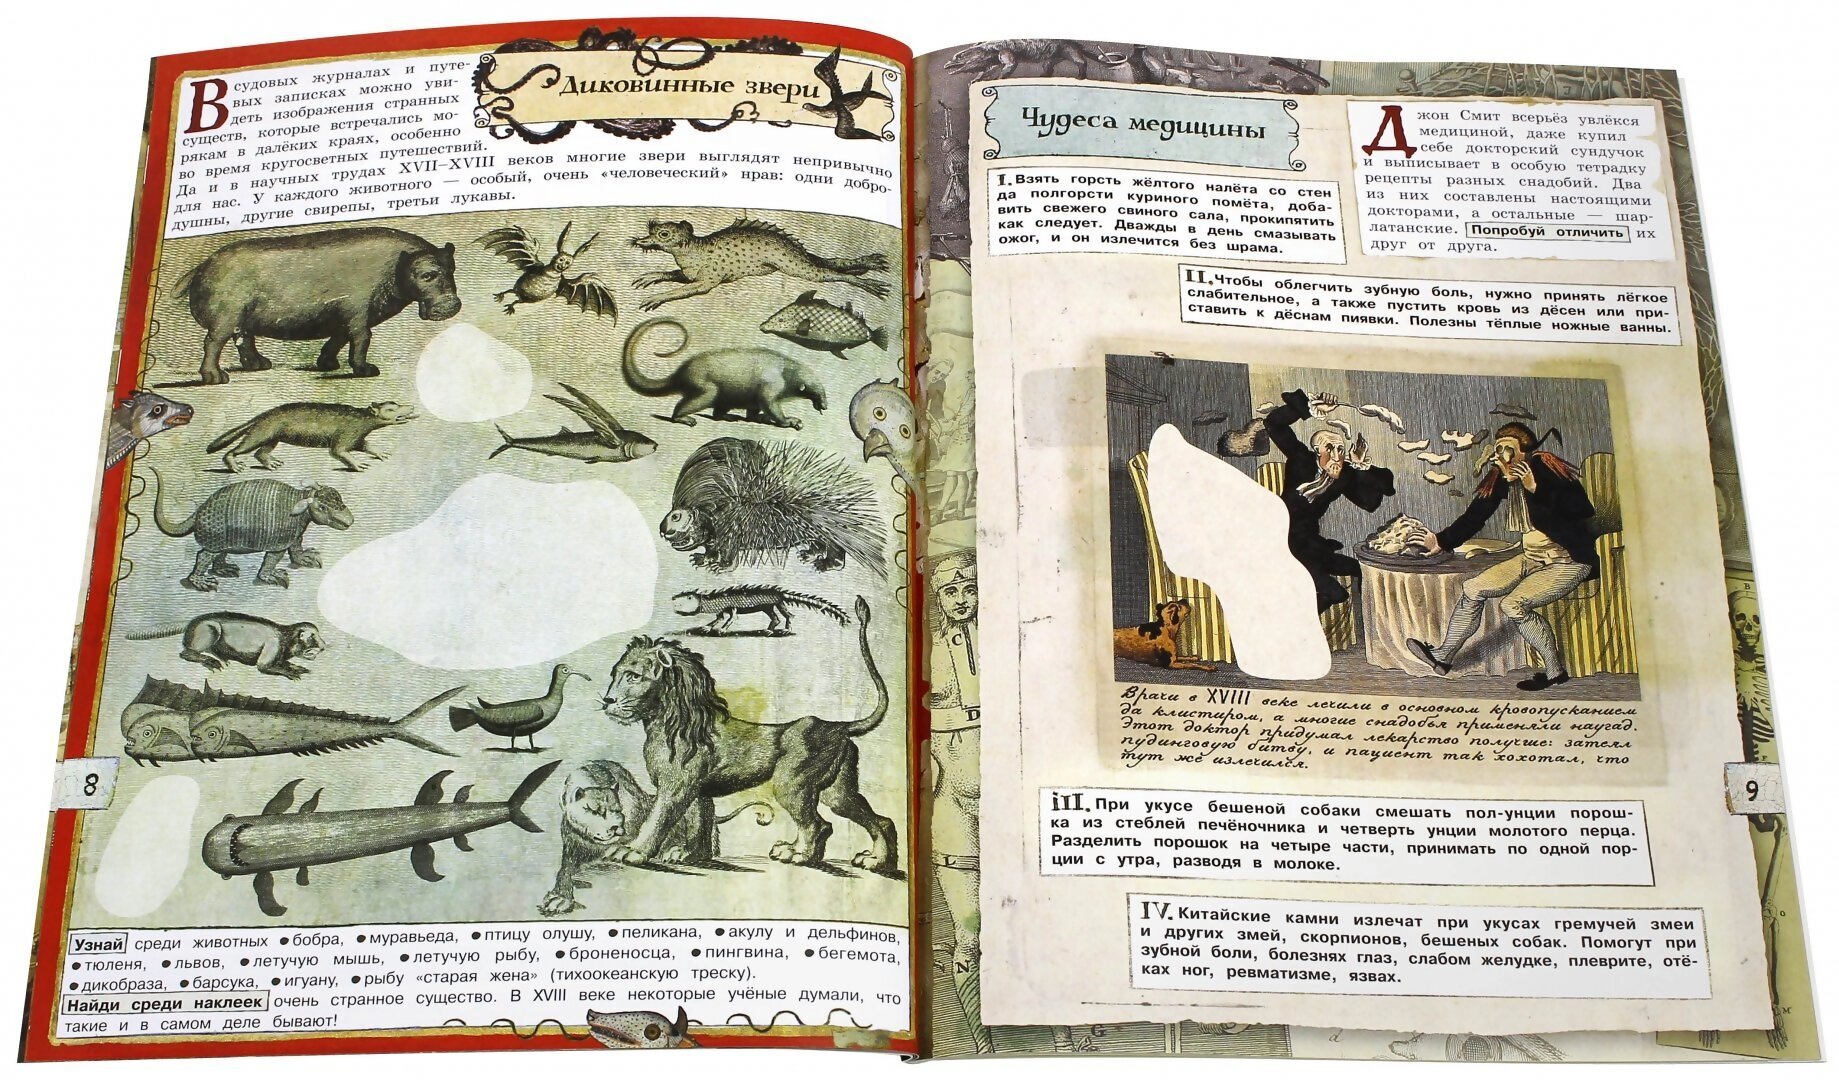 Диковинные звери
В судовых журналах и путе-
вых записках можно уви-
деть изображения странных
существ, которые встречались мо-
рякам в далёких краях, особенно
во время кругосветных путешествий.
Да и в научных трудах XVII–XVIII веков многие звери выглядят непривычно
для нас. У каждого животного — особый, очень «человеческий» нрав: одни добро-
душны, другие свирепы, третьи лукавы.
8
Узнай среди животных • бобра, • муравьеда, • птицу олушу, • пеликана, • акулу и дельфинов,
• тюленя, • львов, • летучую мышь, • летучую рыбу, • броненосца, • пингвина, • бегемота,
• дикобраза, • барсука, • игуану, • рыбу «старая жена» (тихоокеанскую треску).
Найди среди наклеек очень странное существо. В XVIII веке некоторые учёные думали, что
такие и в самом деле бывают!
Чудеса медицины
Джон Смит всерьёз увлёкся
медициной, даже купил
себе докторский сундучок
и выписывает в особую тетрадку
рецепты разных снадобий. Два
из них составлены настоящими
докторами, а остальные — шар-
латанские. Попробуй отличить их
друг от друга.
I. Взять горсть жёлтого налёта со стен
да полгорсти куриного помёта, доба-
вить свежего свиного сала, прокипятить
как следует. Дважды в день смазывать
ожог, и он излечится без шрама.
II. Чтобы облегчить зубную боль, нужно принять лёгкое
слабительное, а также пустить кровь из дёсен или при-
ставить к дёснам пиявки. Полезны тёплые ножные ванны.
Врачи в XVIII веке лечили в основном кровопусканием
да клистиром, а многие снадобья применяли наугад.
Этот доктор придумал лекарство получше: затеял
пудинговую битву, и пациент так хохотал, что
тут же излечился.
9
III. При укусе бешеной собаки смешать пол-унции порош-
ка из стеблей печёночника и четверть унции молотого перца.
Разделить порошок на четыре части, принимать по одной пор-
ции с утра, разводя в молоке.
IV. Китайские камни излечат при укусах гремучей змеи
и других змей, скорпионов, бешеных собак. Помогут при
зубной боли, болезнях глаз, слабом желудке, плеврите, отё-
ках ног, ревматизме, язвах.